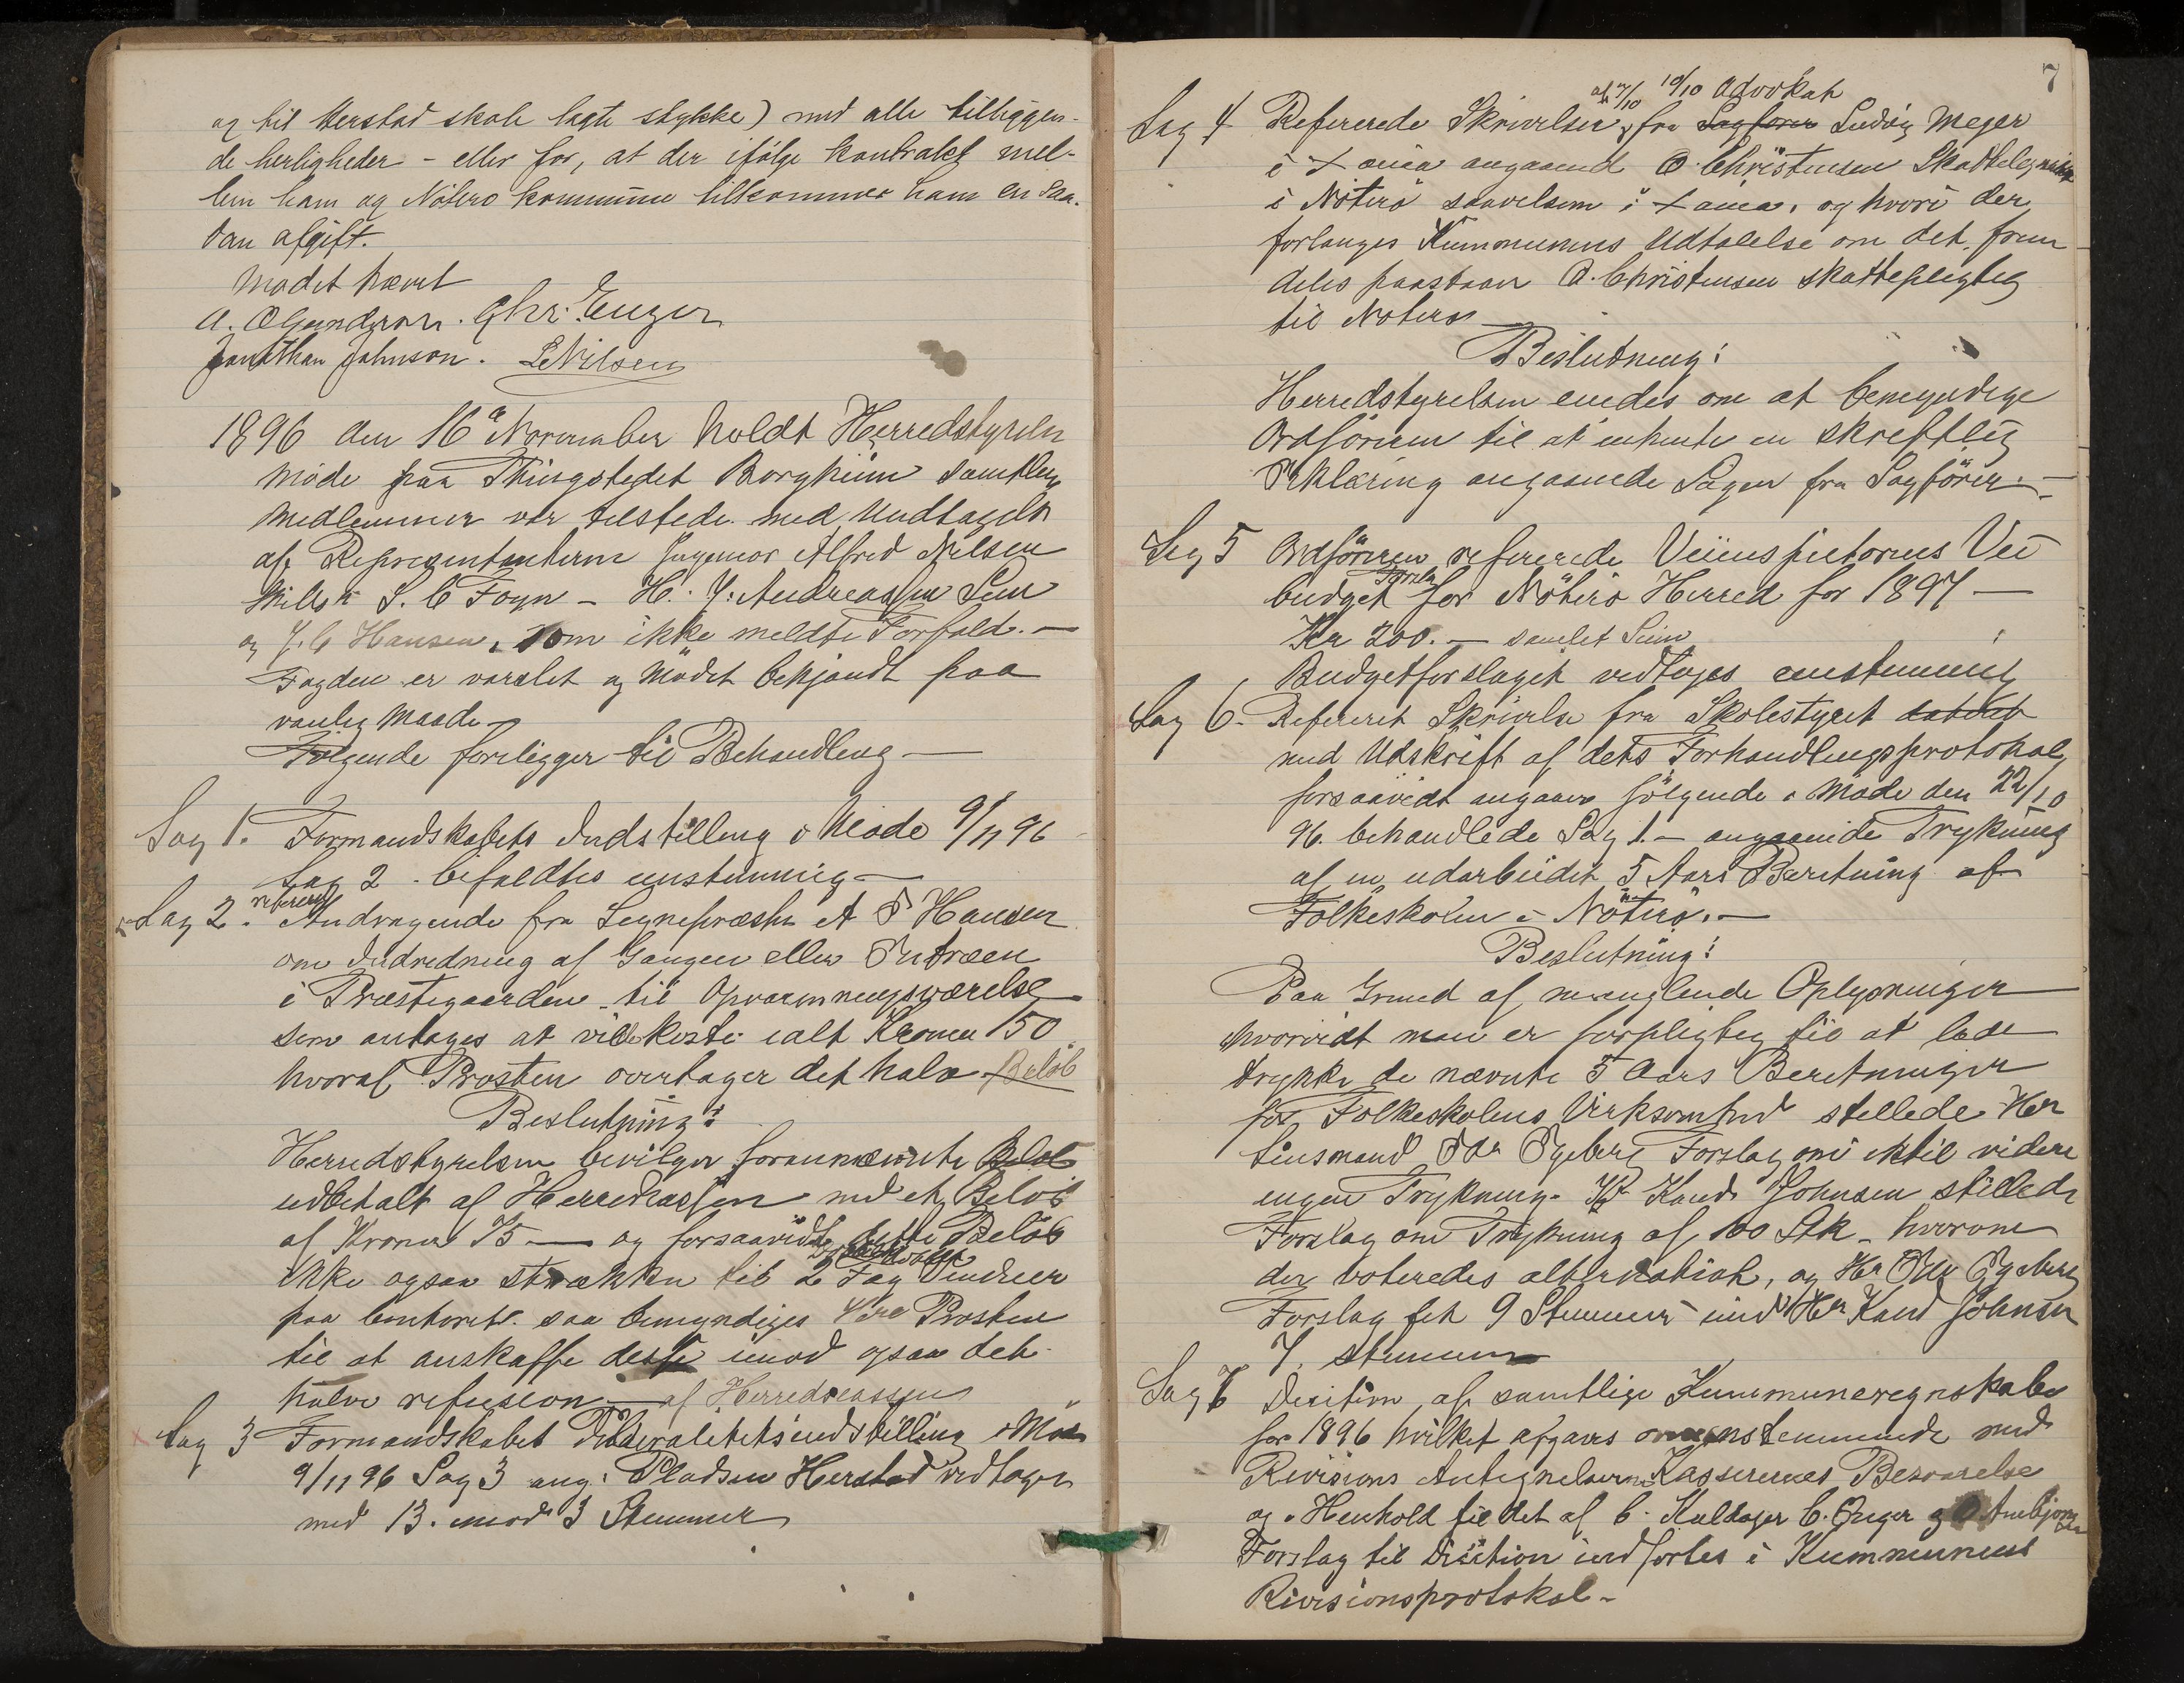 og til Herstad skole lagte stykke) med alle tilliggen-
de herligheder - eller for, at der ifølge kontrakt mel-
lem ham og Nøterø kommune tilkommer ham en saa-
dan afgift.
Mødet hævet
A. Gundersen. Chr. Enger
Jonathan Johnson. L Nilsen
1896 den 16de November holdt Herredstyrelsen
Møde paa Thingstedet Borgheim samtlige
Medlemmer var tilstede med Undtagelse
af Representanterne Ingeniør Alfred Nilsen
S. C Foyn - H. J. Andreassen Sem
og J. C Hansen, som ikke meldte Forfald. -
Dagden er varslet og Mødet bekjendt paa
vanlig Maade -
Følgende foreligger til Behandling -
Sag 1. Formandskabets Indstilling i Møde 9/11 96
Sag 2 - bifaldtes enstemmig -
Sag 2. refereret Andragende fra Sogneprest A T Hansen
om Indredning af Gangen eller Entreen
i Præstegaarden til Opvarmningsværelse
som antages at ville koste ialt Kroner 150
hvoraf Prosten overtager det halve Beløb
Beslutning:
Herredstyrelsen bevilger forannævnte Beløb
udbetalt af Herredkassen med et Beløb
af Kroner 75 - og forsaavidt dette Beløb
ikke ogsaa strækker til 2 Fag Vinduer
paa Contoret saa bemyndiges Prosten
til at anskaffe disse imod ogsaa det
halve refusion - af Herredskassen
Sag 3 Formandskabet Pluralitetsindstilling i Møde
9/11 96 Sag 3 ang. Pladsen Herstad vedtages
med 13. imod 3 Stemmer
7
af 7/10 10/10 Advokat
Sag 4 Refererede Skrivelser, fra Sagfører Ludvig Meyer
i Xania angaaende O. Christensen Skattelegning
i Nøterø saavelsom i Xania. og hvori der
forlanges Kommunens Udtalelse om det frem
deles paastaar O. Christensen skattepligtig
til Nøterø
Beslutning:
Herredstyrelsen enedes om at bemyndige
Ordføreren til at indhente en skreftlig
Erklæring angaaende Sagen fra Sagfører. -
Sag 5 Ordføreren refererede Veiinspektørens Vei
budget Forslag for Nøterø Herred for 1897 -
Kr 200. - samlet Sum
Budgetforslaget vedtoges enstemmig
Sag 6. Refereret Skrivelse fra Skolestyret dateret
med Udskrift af dets Forhandlingsprotokol,
forsaavidt angaar følgende i Møde den 22/10
96. behandlede Sag 1. - angaaende Trykning
af en udarbeidet 5 Aars Beretning af
Folkeskolen i Nøterø. -
Beslutning:
Paa Grund af manglende Oplysninger
hvorvidt man er forpligtig til at lade
trykke de nævnte 5 Aars Beretninger
for Folkeskolens Virksomhed stillede Her
Lensmand Egeberg Forslag om indtil videre
ingen Trykning. Hr Knud Johnsen stillede
Forslag om Trykning af 100 Stk - hvorom
der voteredes alternativt, og Hr Egeberg
Forslag fik 9 Stemmer imod Hr Knud Johnsen
7. Stemmer
Sag 7 Desition af samtlige Kummuneregnskaber
for 1896 hvilket afgaves overensstemmende med
Revisions Antegnelserne Kassererens Besvarelse
og i Henhold til det af C. Kaldager C. Enger og O Arnbjørnsen
Forslag til Desition indførtes i Kummunens
Rivisionsprotokol -